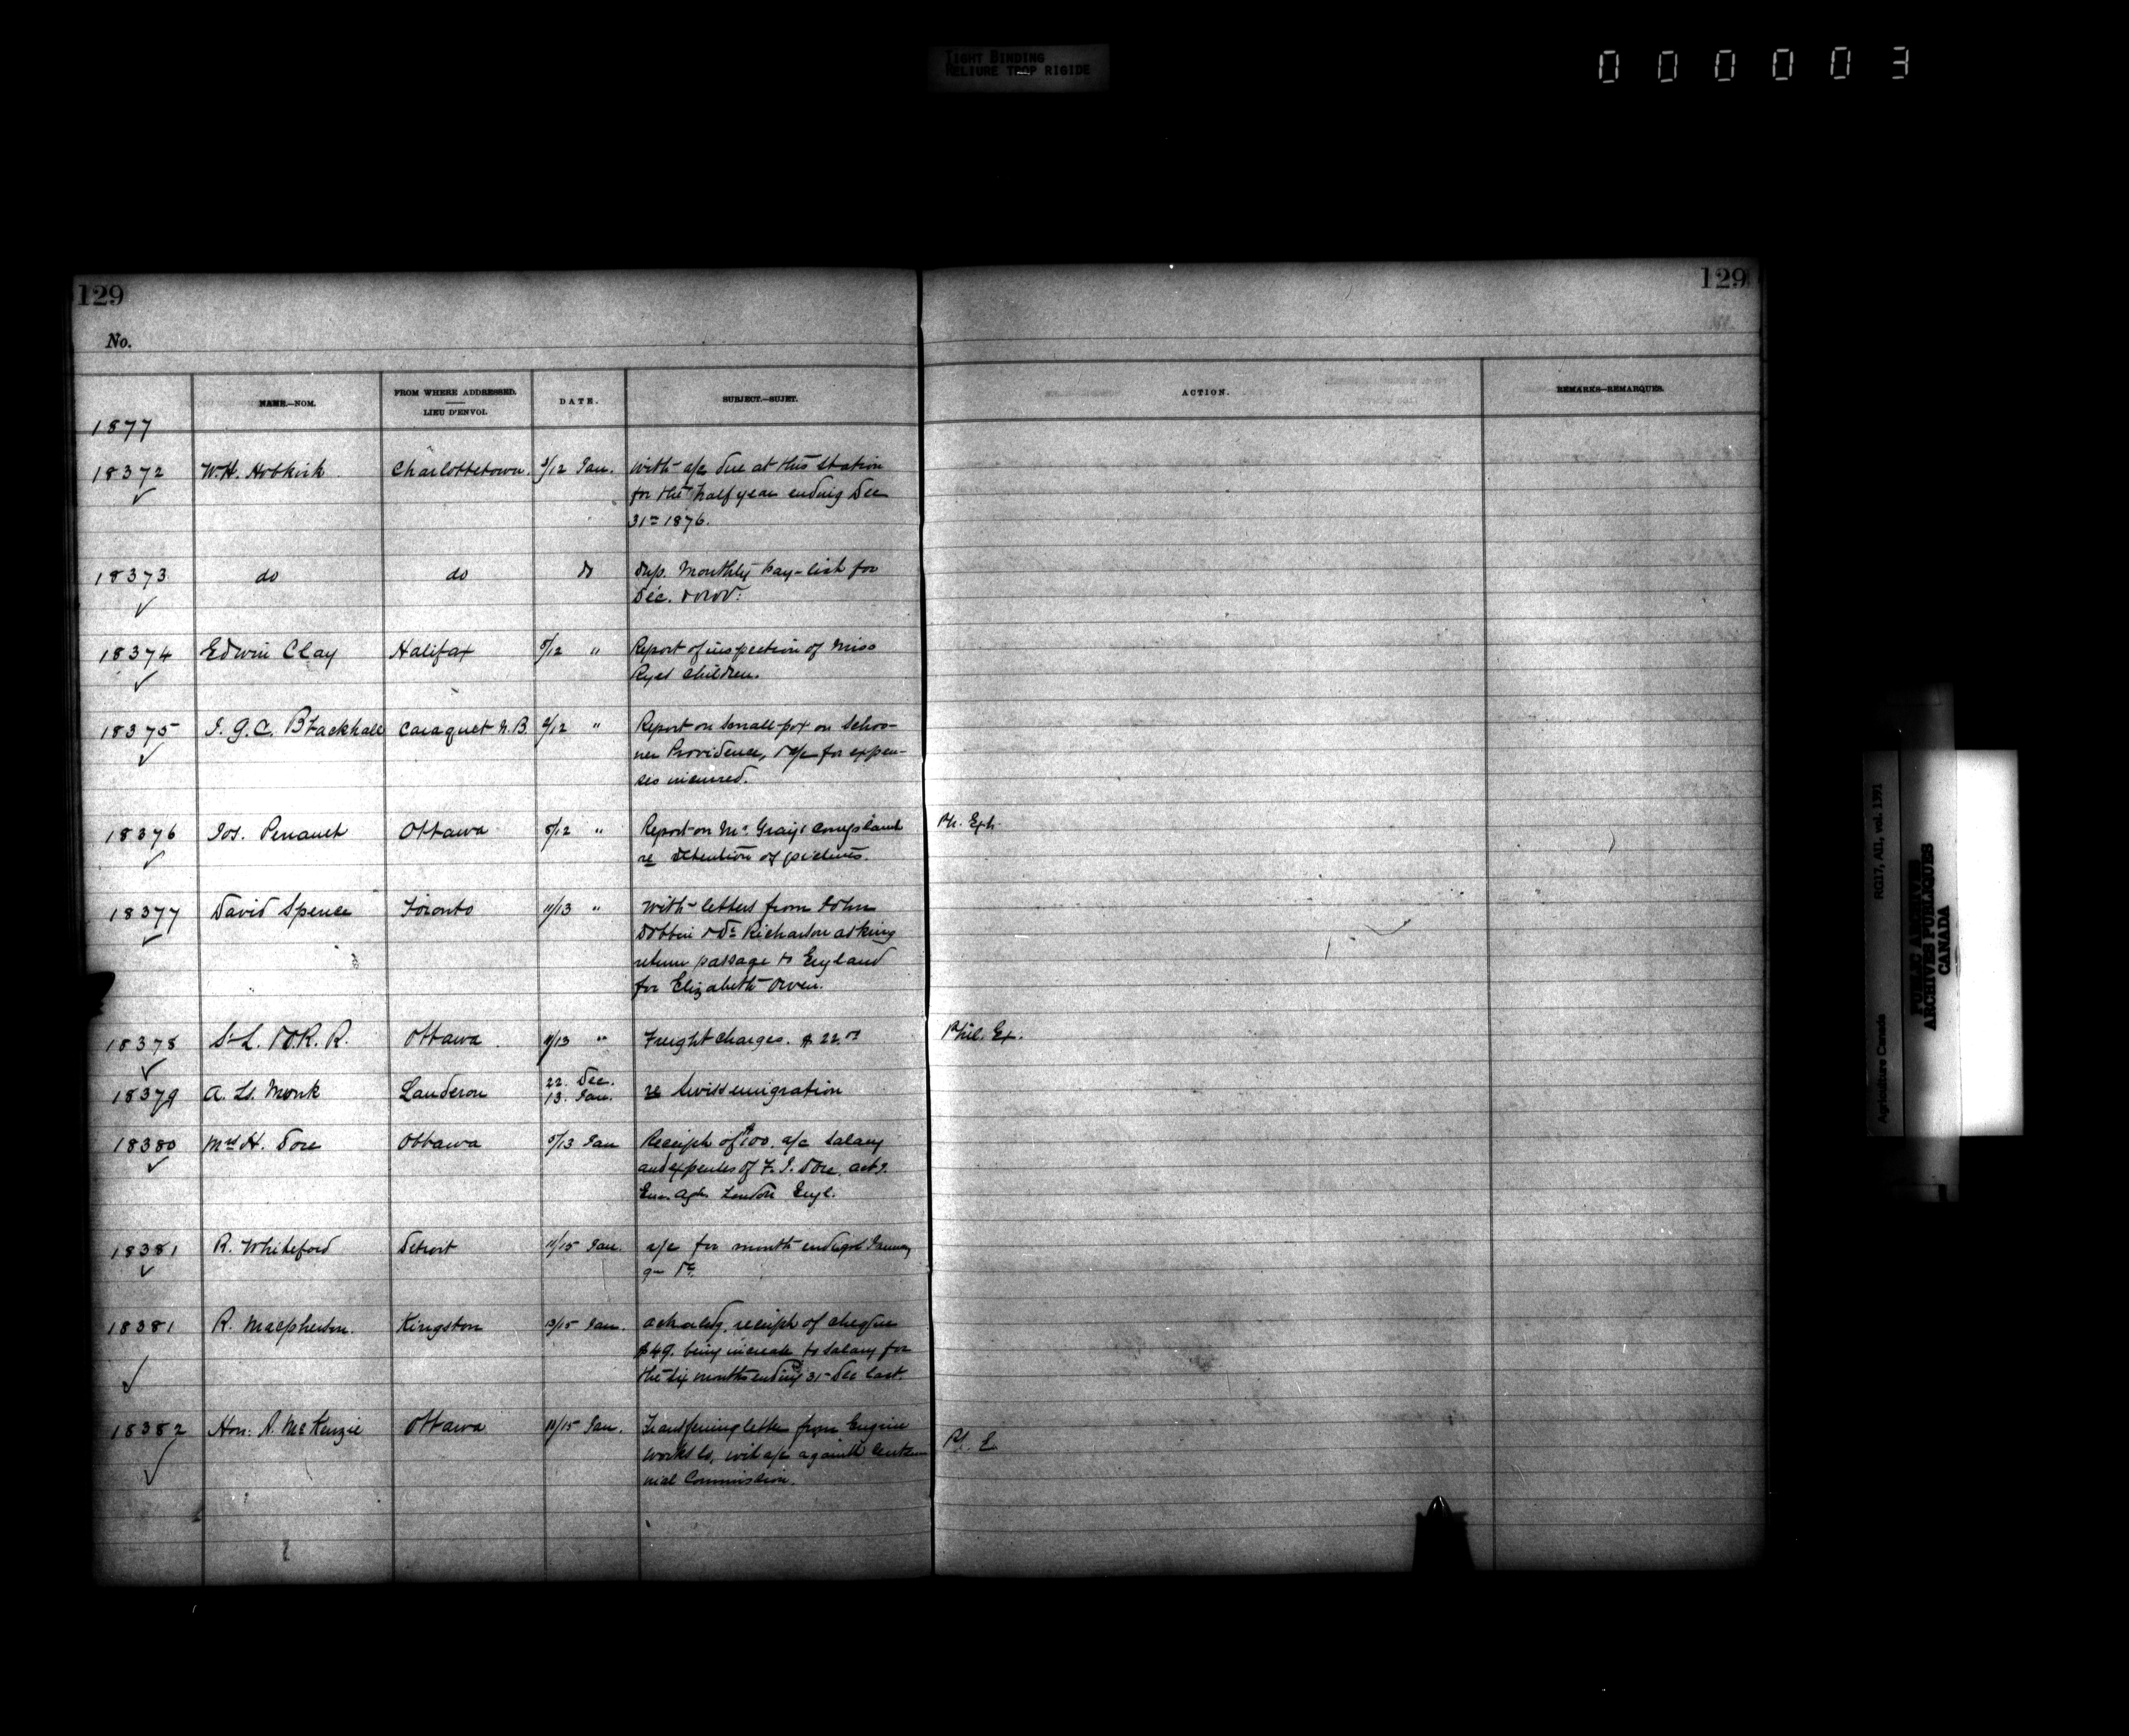 TIGHT BINDING
RELIURE TROP RIGIDE
000003
129
129
No.
NAME.—NOM.
FROM WHERE ADDRESSED.
LIEU D'ENVOI.
DATE.
SUBJECT.—SUJET.
ACTION.
REMARKS—REMARQUES.
1877
18372 W.H. Hobkirk Charlottetown. /12 Jan. With a/c due at this station
for the half year ending Dec
31st 1876.
18373 do do do Dup. Monthly pay-list for
Dec.
18374 Edwin Clay Halifax 8/12 " Report of inspection of Miss
Ryes children.
18375 J. G. C. Blackhall Caraquet N.B. 2/12 " Report on small-pox on Schoo-
ner Providence, & a/c for expen-
ses incurred.
18376 Jos. Perrault Ottawa 8/12 " Report on Mr Gray's complaint
re detention of pictures.
Ph. Exh.
18377 David Spence Toronto 11/13 " With letters from John
Dobbin & Dr Richardson asking
return passage to England
for Elizabeth Owen.
18378 St L. & O. R. R. Ottawa 11/13 " Freight charges. $22.
Phil. Ex.
18379 A. Monk Landeron 22. Dec.
13. Jan. re Swiss emigration
18380 Mrs H. Dore Ottawa 5/13 Jan Receipt of $100. a/c Salary
and expenses of F. J. Dore. act.
Em. Agt. London Engl.
18381 R. Whiteford Detroit 11/15 Jan. a/c for month January
18381 R. Macpherson. Kingston 13/15 Jan. Acknowledg. receipt of cheque
$49. being increase to salary for
the six months ending 31st Dec last.
18382 Hon: A. McKenzie Ottawa 11/15 Jan. Transferring letter from Engine
works Co, with a/c against Centen-
nial Commission.
Ph. E.
Agriculture Canada
RG17, AII, vol. 1391
PUBLIC ARCHIVES
ARCHIVES PUBLIQUES
CANADA